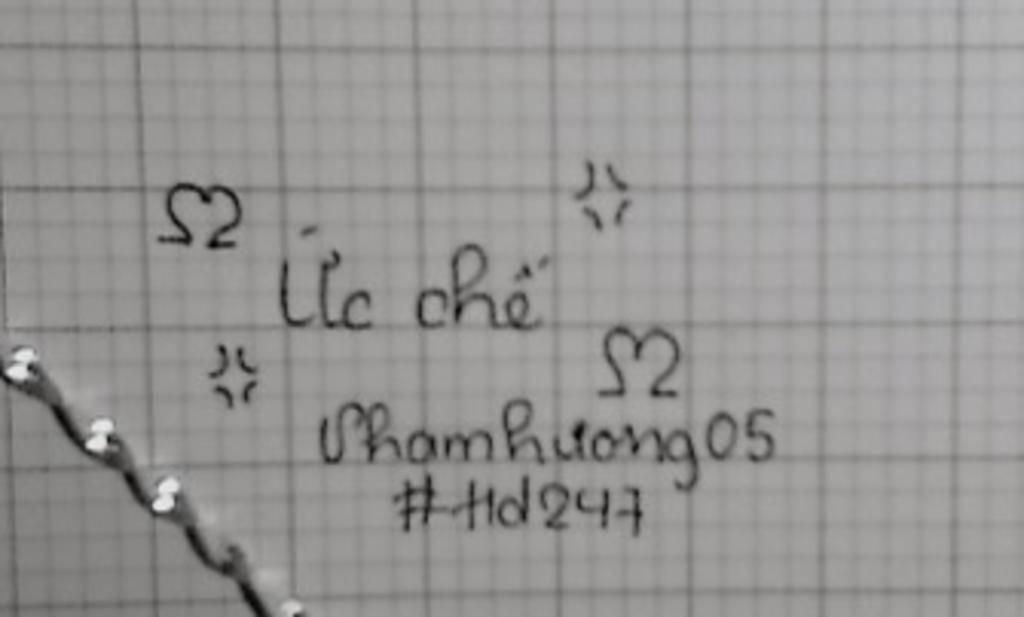 Ức chế
Phamhuong05
#Hd247